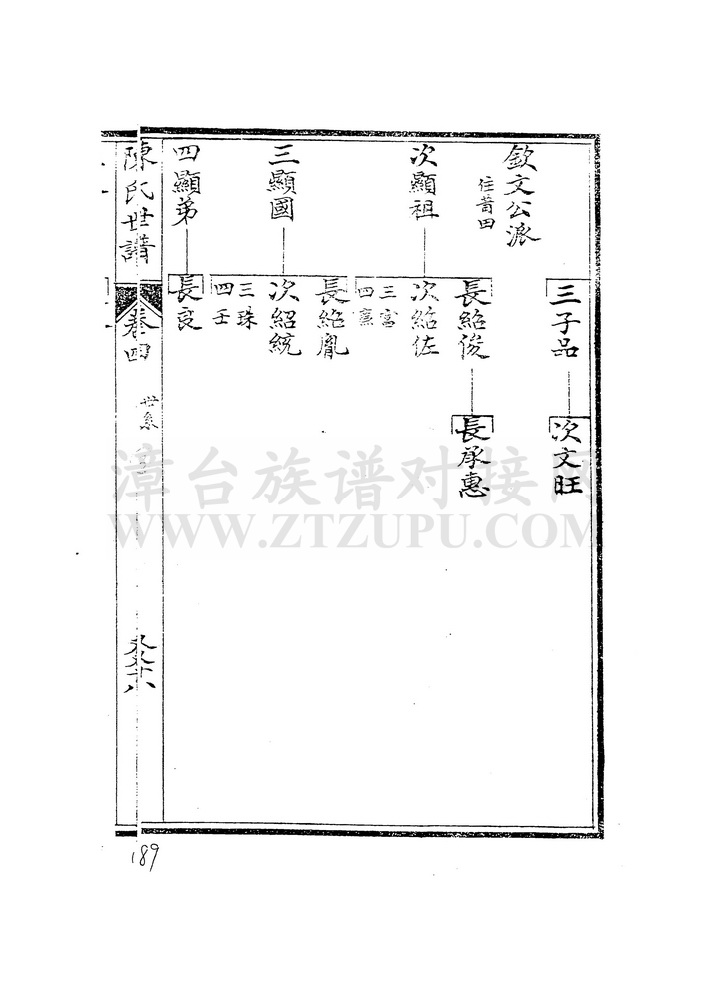 三子品
次文旺
欽文公派
住莆田
次顯祖
長紹俊
長承惠
次紹佐
三富
四廉
三顯國
長紹胤
次紹統
三珠
四壬
四顯弟
長良
陳氏世譜
卷四
世系
189
漳台族谱对接网
WWW.ZTZUPU.COM